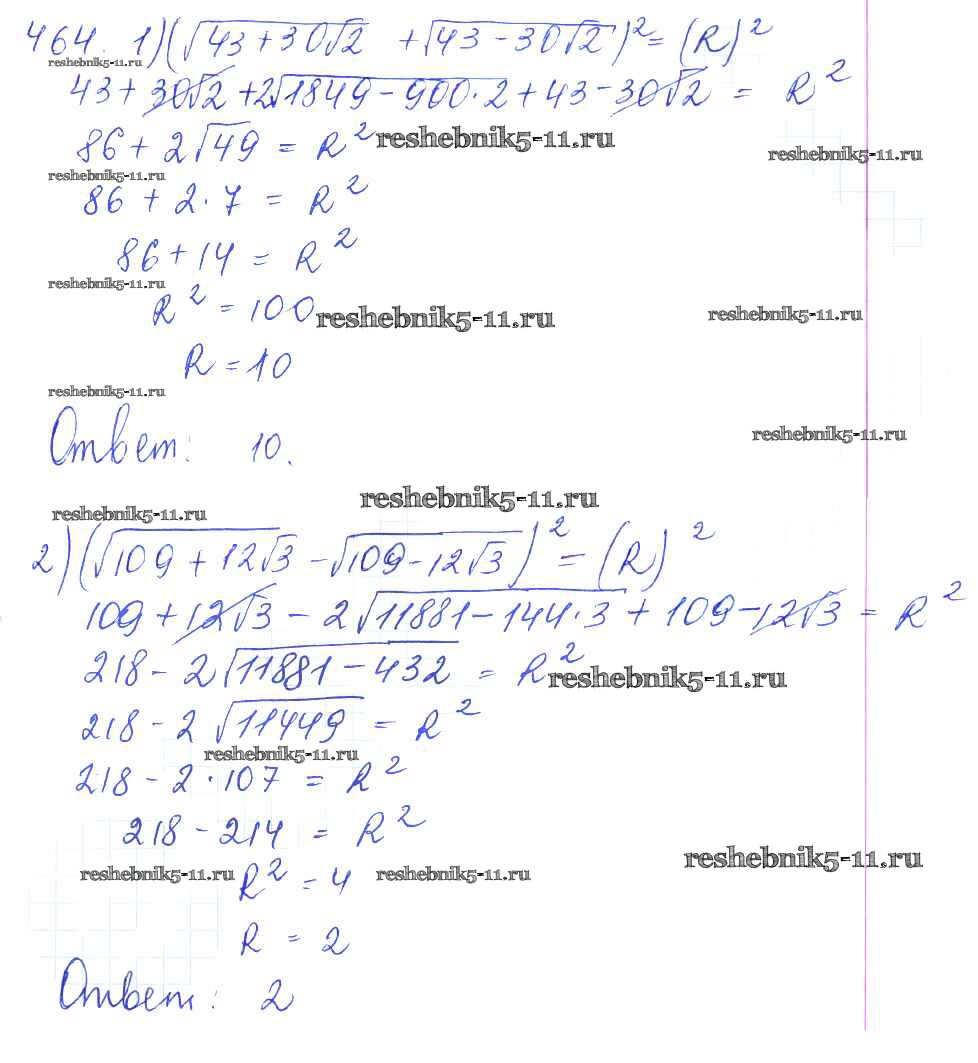 464. 1) (√(43 + 30√2) + √(43 - 30√2))² = (R)²
reshebnik5-11.ru
43 + 30√2 + 2√(1849 - 900·2) + 43 - 30√2 = R²
86 + 2√49 = R² reshebnik5-11.ru
reshebnik5-11.ru
reshebnik5-11.ru
86 + 2·7 = R²
86 + 14 = R²
reshebnik5-11.ru
R² = 100 reshebnik5-11.ru reshebnik5-11.ru
R = 10
reshebnik5-11.ru
Ответ: 10.
reshebnik5-11.ru
reshebnik5-11.ru
reshebnik5-11.ru
2) (√(109 + 12√3) - √(109 - 12√3))² = (R)²
109 + 12√3 - 2√(11881 - 144·3) + 109 - 12√3 = R²
218 - 2√(11881 - 432) = R² reshebnik5-11.ru
218 - 2√(11449) = R²
reshebnik5-11.ru
218 - 2·107 = R²
218 - 214 = R²
reshebnik5-11.ru
reshebnik5-11.ru R² = 4 reshebnik5-11.ru
R = 2
Ответ: 2